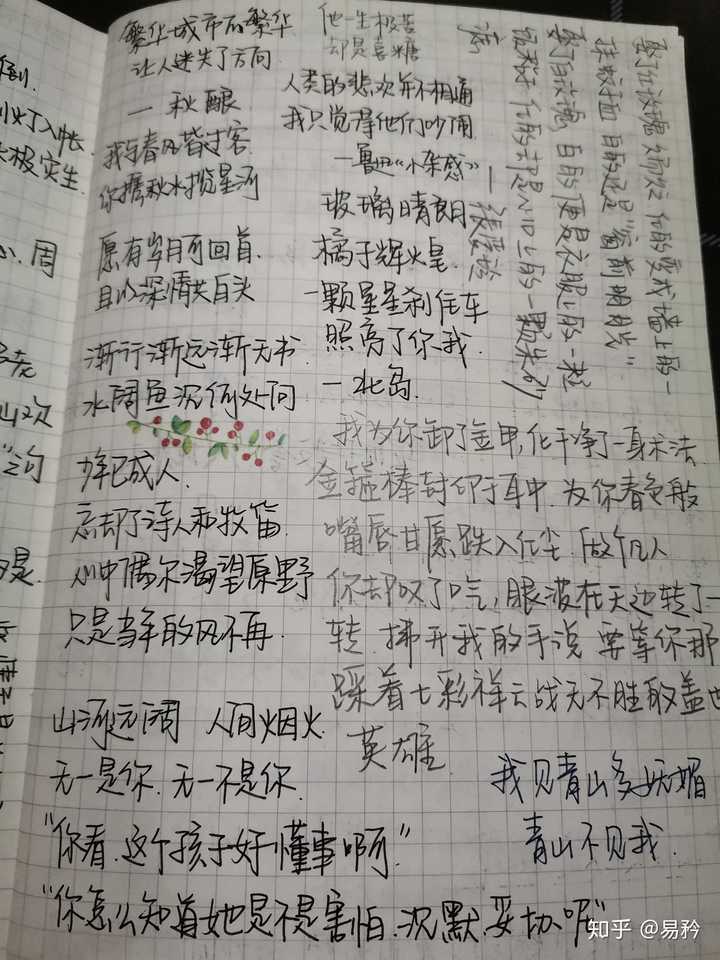 繁华城市的繁华
让人迷失了方向
一秋酿
我与春风皆过客
你携秋水揽星河
愿有岁月可回首
且以深情共白头
渐行渐远渐无书
水阔鱼沉何处问
少年已成人
忘却了诗人和牧笛
心中偶尔渴望原野
只是当年的风不再
山河远阔 人间烟火
无一是你.无一不是你
"你看.这个孩子好懂事啊"
"你怎么知道她是不是害怕.沉默.妥协呢"
他一生极苦
却是喜糖
人类的悲欢并不相通
我只觉得他们吵闹
一鲁迅《小杂感》
玻璃晴朗
橘子辉煌
一颗星星刹住车
照亮了你我.
一北岛.
我为你卸了金甲,化干净了一身术法
金箍棒封印于耳中.为你春色般
嘴唇甘愿跌入红尘.做个凡人
你却叹了口气,眼波在天边转了一
转.拂开我的手说 要等你那
踩着七彩祥云战无不胜的盖世
英雄
我见青山多妩媚
青山不见我.
娶了红玫瑰 久而久之 红的变成墙上的一
抹蚊子血 白的还是"窗前明月光"
娶了白玫瑰,白的便是衣服上的一粒
饭粘子 红的却是心口上的一颗朱砂
痣
一張愛玲
倒.
灯入帐
极实生
周
山次
知乎 @易矜